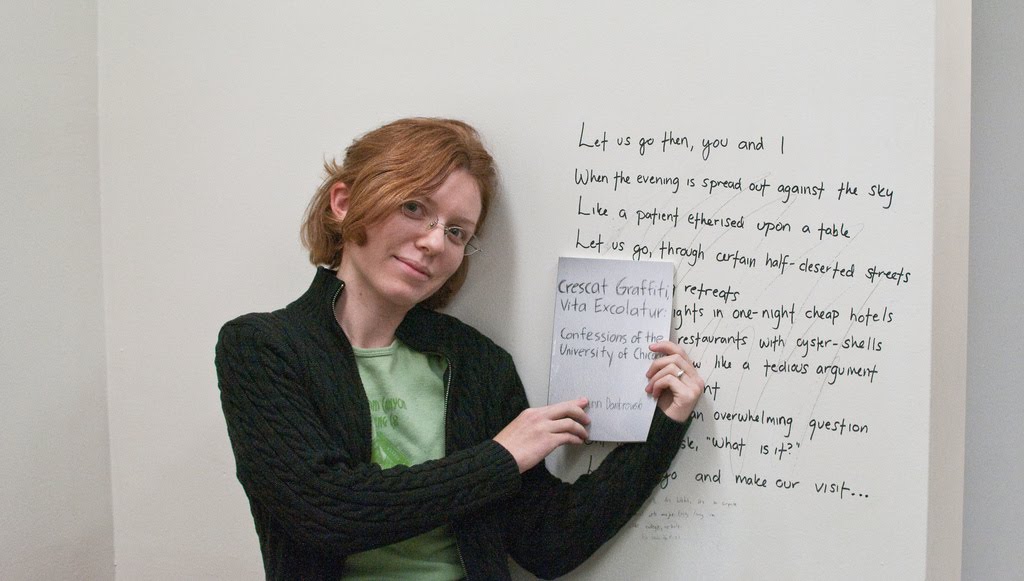 Let us go then, you and I
When the evening is spread out against the sky
Like a patient etherised upon a table
Let us go, through certain half-deserted streets
retreats
ights in one-night cheap hotels
restaurants with oyster-shells
like a tedious argument
nt
an overwhelming question
sk, "What is it?"
go and make our visit...
Crescat Graffiti,
Vita Excolatur:
Confessions of the
University of Chica